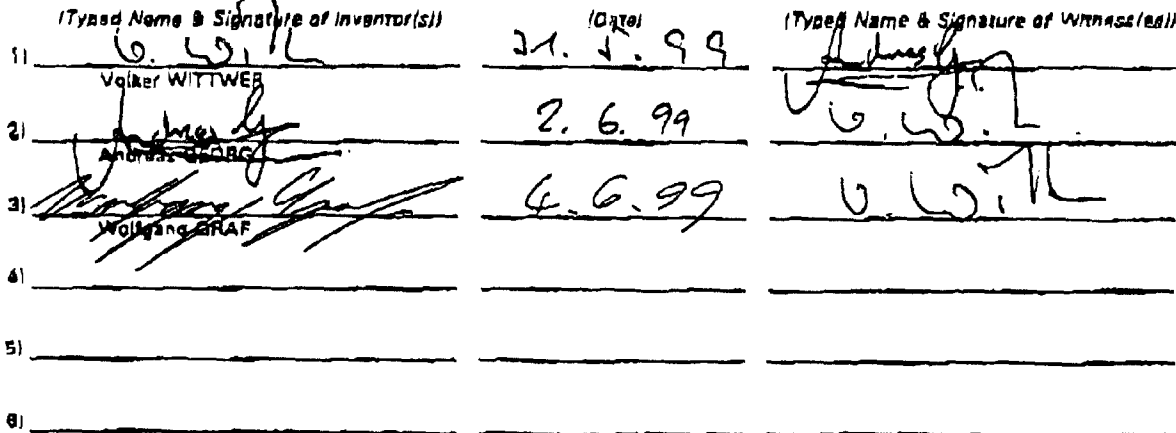 (Typed Name & Signature of Inventor(s)) (Date) (Typed Name & Signature of Witness(es))
1) 31. 5. 99
Volker WITTWER
2) 2. 6. 99
Andreas GEORG
3) 4. 6. 99
Wolfgang GRAF
4)
5)
6)